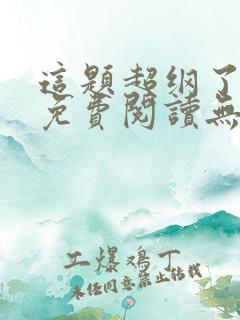 這題超纲了
免費閱讀無
工爆鸡丁
未经同意禁止转载